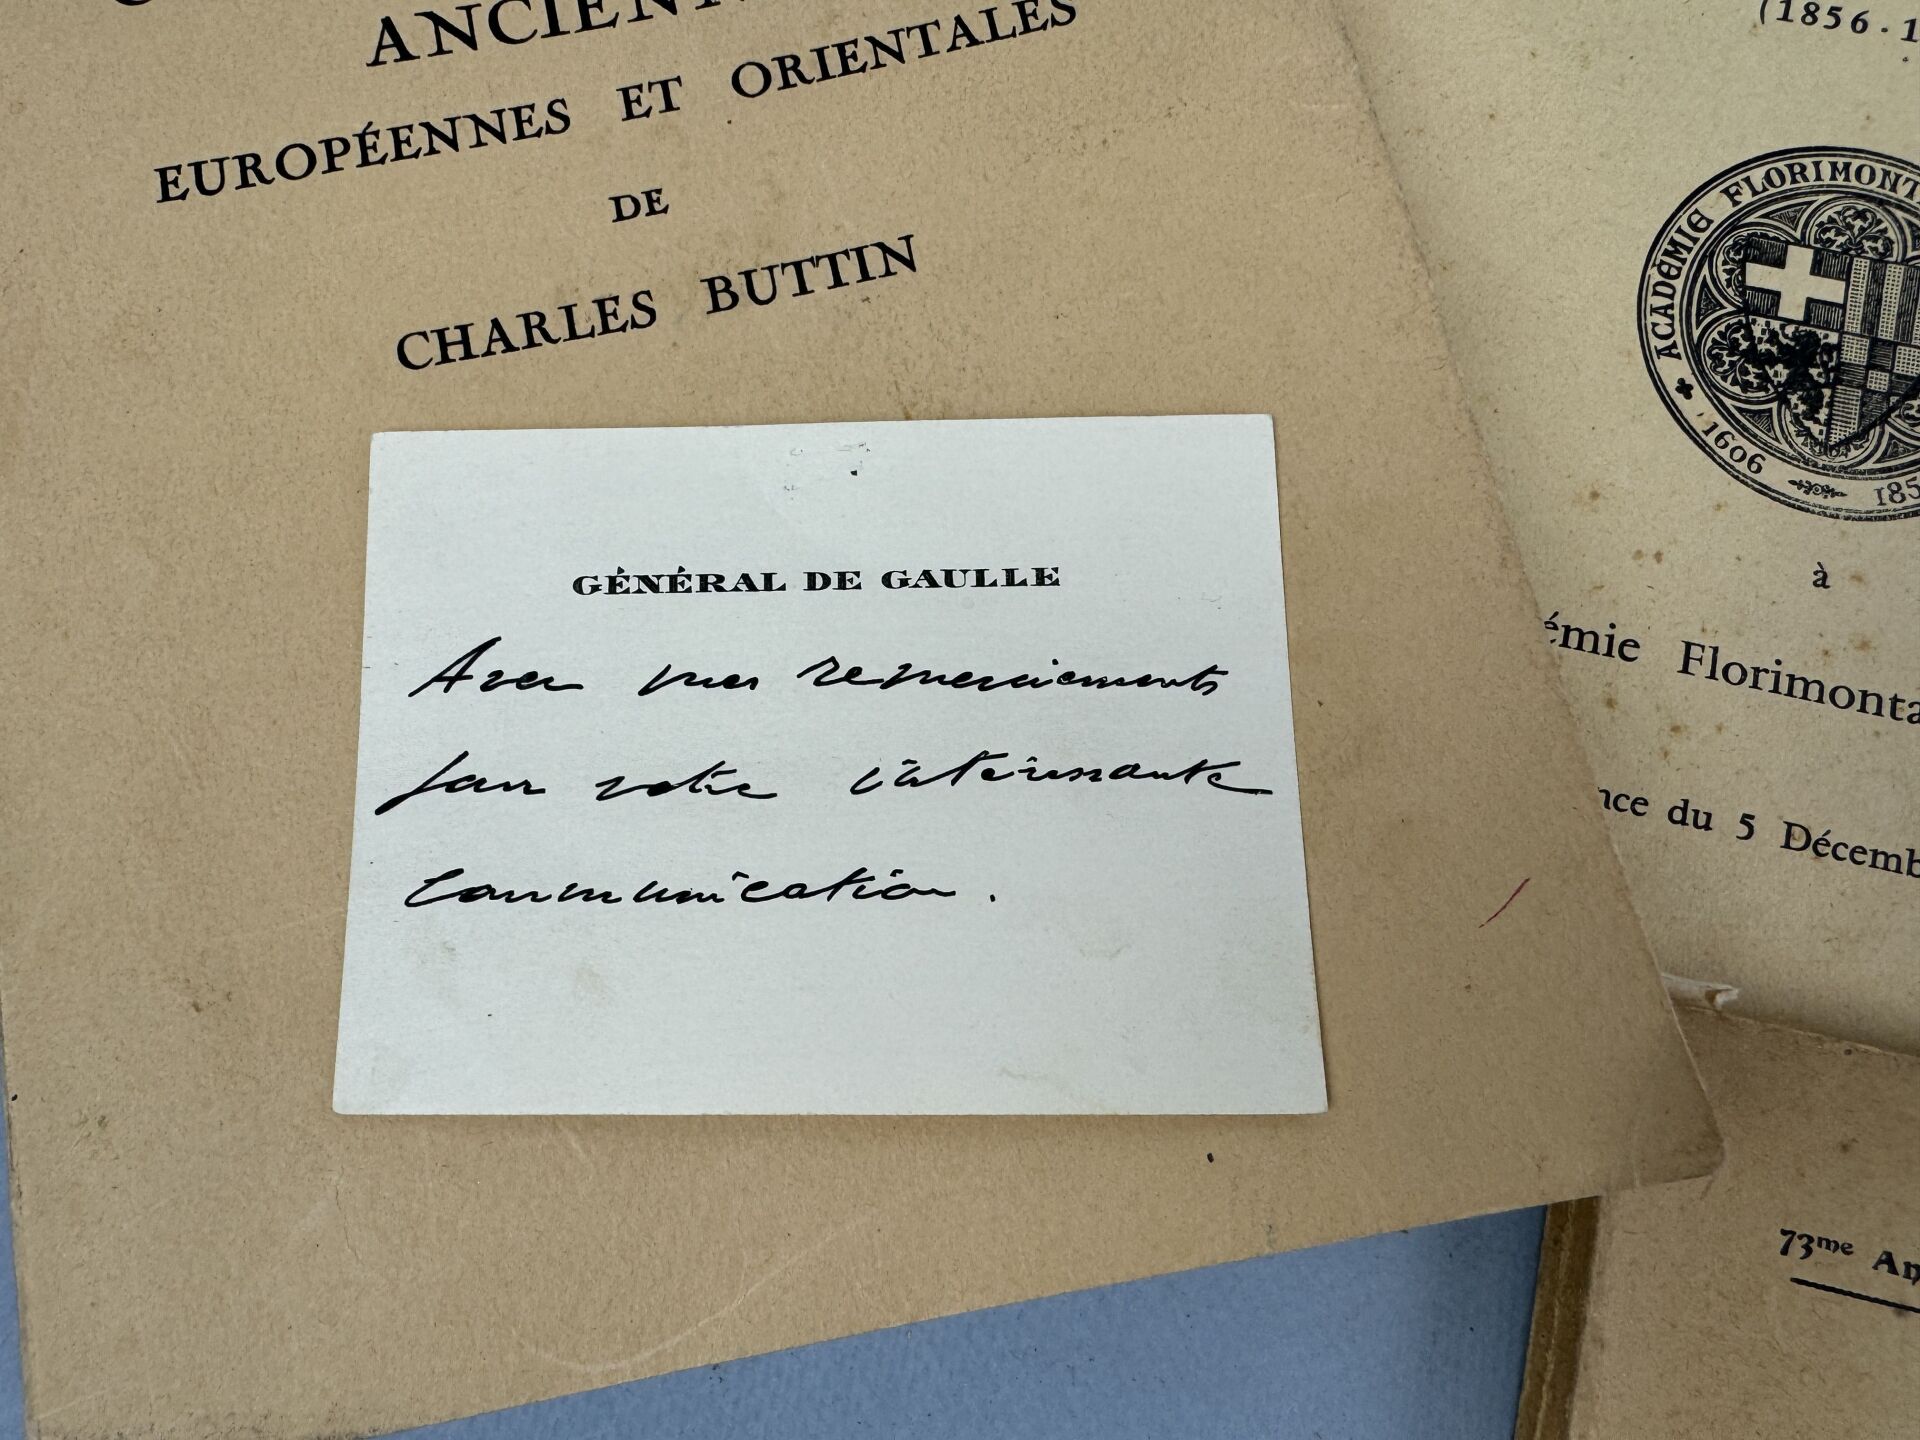 EUROPÉENNES ET ORIENTALES
DE
CHARLES BUTTIN
GÉNÉRAL DE GAULLE
Avec mes remerciements
pour votre intéressante
communication.
(1856 . 1
ACADÉMIE FLORIMONT
1606
185
à
émie Florimonta
nce du 5 Décemb
73me An